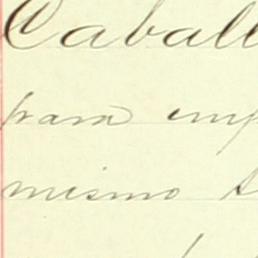 Caball
para emp
mismo